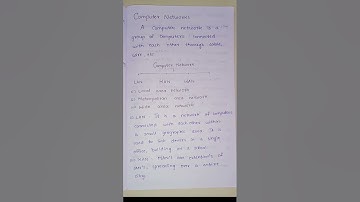 Computer Network
A Computer network is a
group of computers connected
with each other through cables,
wire, etc
Computer Network
LAN MAN WAN
1) Local area network
2) Metropolitan area network
3) Wide area network
1) LAN It is a network of computers
connected with each other within
a small geographic area. It is
used to link devices in a single
office, building or a
LAN's, spreading over a whole
city